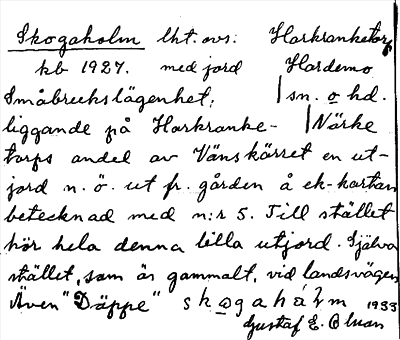 Skogaholm lht. avs. Harkranketorp
kb 1927. med jord Hardemo
Småbrukslägenhet, sn. o hd.
liggande på Harkranke- Närke
torps andel av Vänskärret en ut-
jord n. ö. ut fr. gården å ek-kartan
betecknad med n:r 5. Till stället
hör hela denna lilla utjord. Själva
stället, som är gammalt, vid landsvägen
Även "Däppe" skogahålm 1933
Gustaf E. Olsson